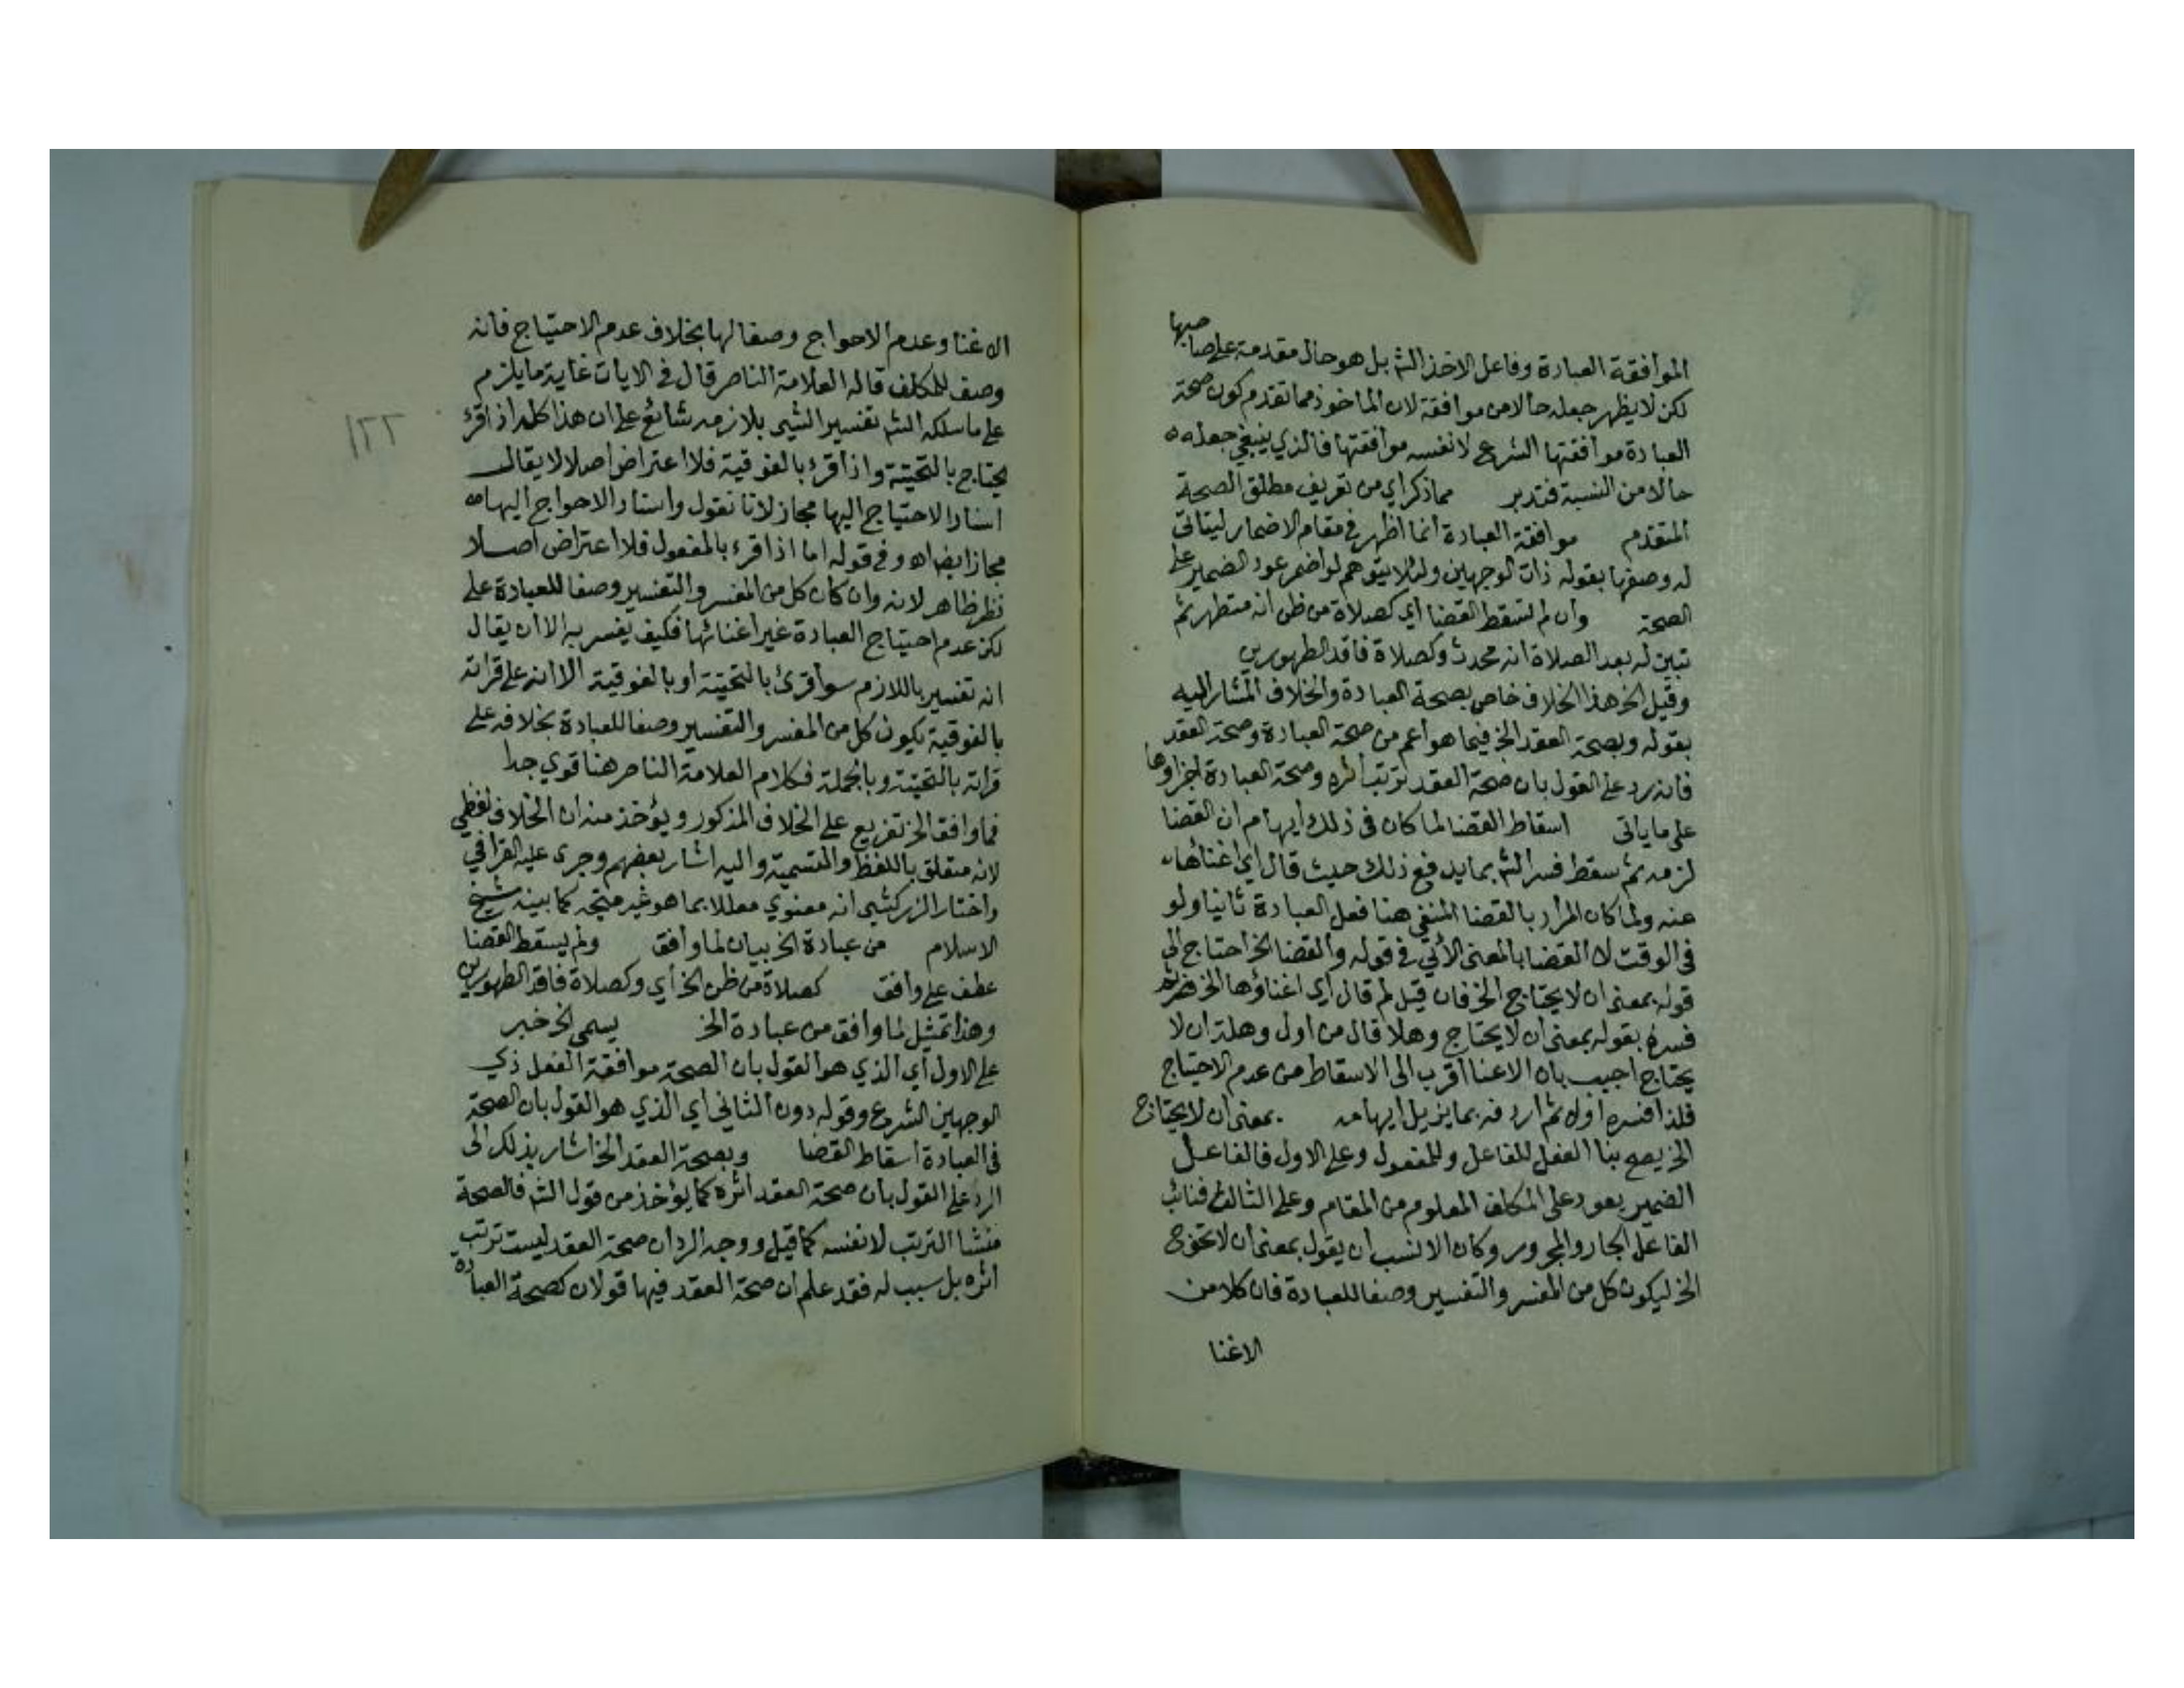 الموافقة العبادة وفاعل الاخذ الشم بل هو حال مقدمة على صاحبها
لكن لا يظهر جعله حالا من موافقة لان الماخوذ مما تقدم كون صحة
العبادة موافقتها الشرع لا نفس موافقتها فالذي ينبغي جعله ه
حالا من النسبة فتدبر مما ذكر اي من تعريف مطلق الصحة
المتقدم موافقة العبادة انما اظهر في مقام الاضمار ليتاتى
له وصفها بقوله ذات الوجهين ولئلا يتوهم لو اضمر عود الضمير على
الصحة وان لم تسقط القضا اي كصلاة من ظن انه متطهر ثم
تبين له بعد الصلاة انه محدث وكصلاة فاقد الطهورين
وقيل الخ هذا الخلاف خاص بصحة العبادة والخلاف المشار اليه
بقوله وبصحة العقد الخ فيما هو اعم من صحة العبادة وصحة العقد
فانه رد على القول بان صحة العقد ترتب اثره وصحة العبادة اجزاوها
على ما ياتى اسقاط القضا لما كان فى ذلك ايهام ان القضا
لزمه ثم سقط فسر الشم بما يدفع ذلك حيث قال اي اغناها
عنه ولما كان المراد بالقضا المنفي هنا فعل العبادة ثانيا ولو
فى الوقت لا القضا بالمعنى الآتي في قوله والقضا الخ احتاج الى
قوله بمعنى ان لا يحتاج الخ فان قيل لم قال اي اغناؤها الخ ثم
فسره بقوله بمعنى ان لا يحتاج وهلا قال من اول وهلة ان لا
يحتاج اجيب بان الاغنا اقرب الى الاسقاط من عدم الاحتياج
فلذا فسره اولا ثم اردفه بما يزيل ايهامه بمعنى ان لا يحتاج
الخ يصح بنا الفعل للفاعل وللمفعول وعلى الاول فالفاعل
الضمير يعود على المكلف المعلوم من المقام وعلى الثاني فنائب
الفاعل الجار والمجرور وكان الانسب ان يقول بمعنى ان لا تحوج
الخ ليكون كل من المفسر والتفسير وصفا للعبادة فان كلا من
الاغنا
١٢٢
الاغنا وعدم الاحواج وصفا لها بخلاف عدم الاحتياج فانه
وصف للمكلف قاله العلامة الناصر قال في الايات غاية ما يلزم
على ما سلكه الشم تفسير الشيى بلازمه شائع على ان هذا كله اذا قرئ
يحتاج بالتحتية واذا قرئ بالفوقية فلا اعتراض اصلا لا يقال
اسناد الاحتياج اليها مجاز لانا نقول واسناد الاحواج اليها ه
مجاز ايضا اه وفي قوله اما اذا قرئ بالمفعول فلا اعتراض اصلا
نظر ظاهر لانه وان كان كل من المفسر والتفسير وصفا للعبادة على
لكن عدم احتياج العبادة غير اغنائها فكيف يفسر به الا ان يقال
انه تفسير باللازم سوا قرئ بالتحتية او بالفوقية الا انه على قراته
بالفوقية يكون كل من المفسر والتفسير وصفا للعبادة بخلافه على
قراته بالتحتية وبالجملة فكلام العلامة الناصر هنا قوي جدا
فما وافق الخ تفريع على الخلاف المذكور ويؤخذ منه ان الخلاف لفظي
لانه متعلق باللفظ والتسمية واليه اشار بعضهم وجرى عليه القرافي
واختار الزركشي انه معنوي معللا بما هو غير متجه كما بينه شيخ
الاسلام من عبادة الخ بيان لما وافق ولم يسقط القضا
عطف على وافق كصلاة من ظن الخ اي وكصلاة فاقد الطهورين
وهذا تمثيل لما وافق من عبادة الخ يسمى الخ خبر
على الاول اي الذي هو القول بان الصحة موافقة الفعل ذي
الوجهين الشرع وقوله دون الثاني اي الذي هو القول بان الصحة
فى العبادة اسقاط القضا وبصحة العقد الخ اشار بذلك الى
الرد على القول بان صحة العقد اثره كما يؤخذ من قول الشم فالصحة
منشا الترتب لا نفسه كما قيل ووجه الرد ان صحة العقد ليست ترتب
اثره بل سبب له فقد علم ان صحة العقد فيها قولان كصحة العبادة